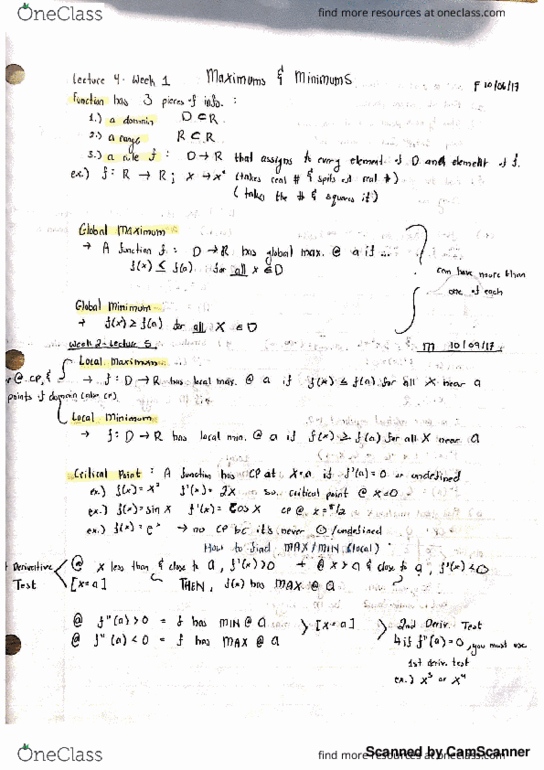 OneClass
find more resources at oneclass.com
Lecture 4 - Week 1 Maximums & Minimums F 10/06/17
Function has 3 pieces of info. :
1.) a domain D ⊂ R
2.) a range R ⊂ R
3.) a rule f : D → R that assigns to every element of D and element of f.
ex.) f: R → R ; x → x² (takes real # & spits out real #)
(takes the # & squares it)
Global Maximum
→ A function f : D → R has global max. @ a if ...
f(x) ≤ f(a) for all x ∈ D
can have more than
one of each
Global Minimum
→ f(x) ≥ f(a) for all X ∈ D
Week 2 - Lecture 5 m 10/09/17
Local Maximum
@ CP, &
→ f : D → R has local max. @ a if f(x) ≤ f(a) for all X near a
points of domain (also CP)
Local Minimum
→ f: D → R has local min. @ a if f(x) ≥ f(a) for all X near a
Critical Point : A function has CP at X=a if f'(a) = 0 or undefined
ex.) f(x) = x² f'(x) = 2x so.. critical point @ x=0
ex.) f(x) = sin X f'(x) = cos X CP @ x = π/2
ex.) f(x) = eˣ → no CP bc it's never 0/undefined
How to find MAX/MIN (local)
Derivative
Test
@ X less than & close to a, f'(x) > 0 → @ x > a & close to a, f'(x) < 0
[x=a] THEN, f(x) has MAX @ a
@ f''(a) > 0 = f has MIN @ a [x=a]
@ f''(a) < 0 = f has MAX @ a
2nd Deriv. Test
↳ if f''(a) = 0, you must use
1st deriv. test
ex.) x³ or x⁴
OneClass
find more resources at oneclass.com
Scanned by CamScanner